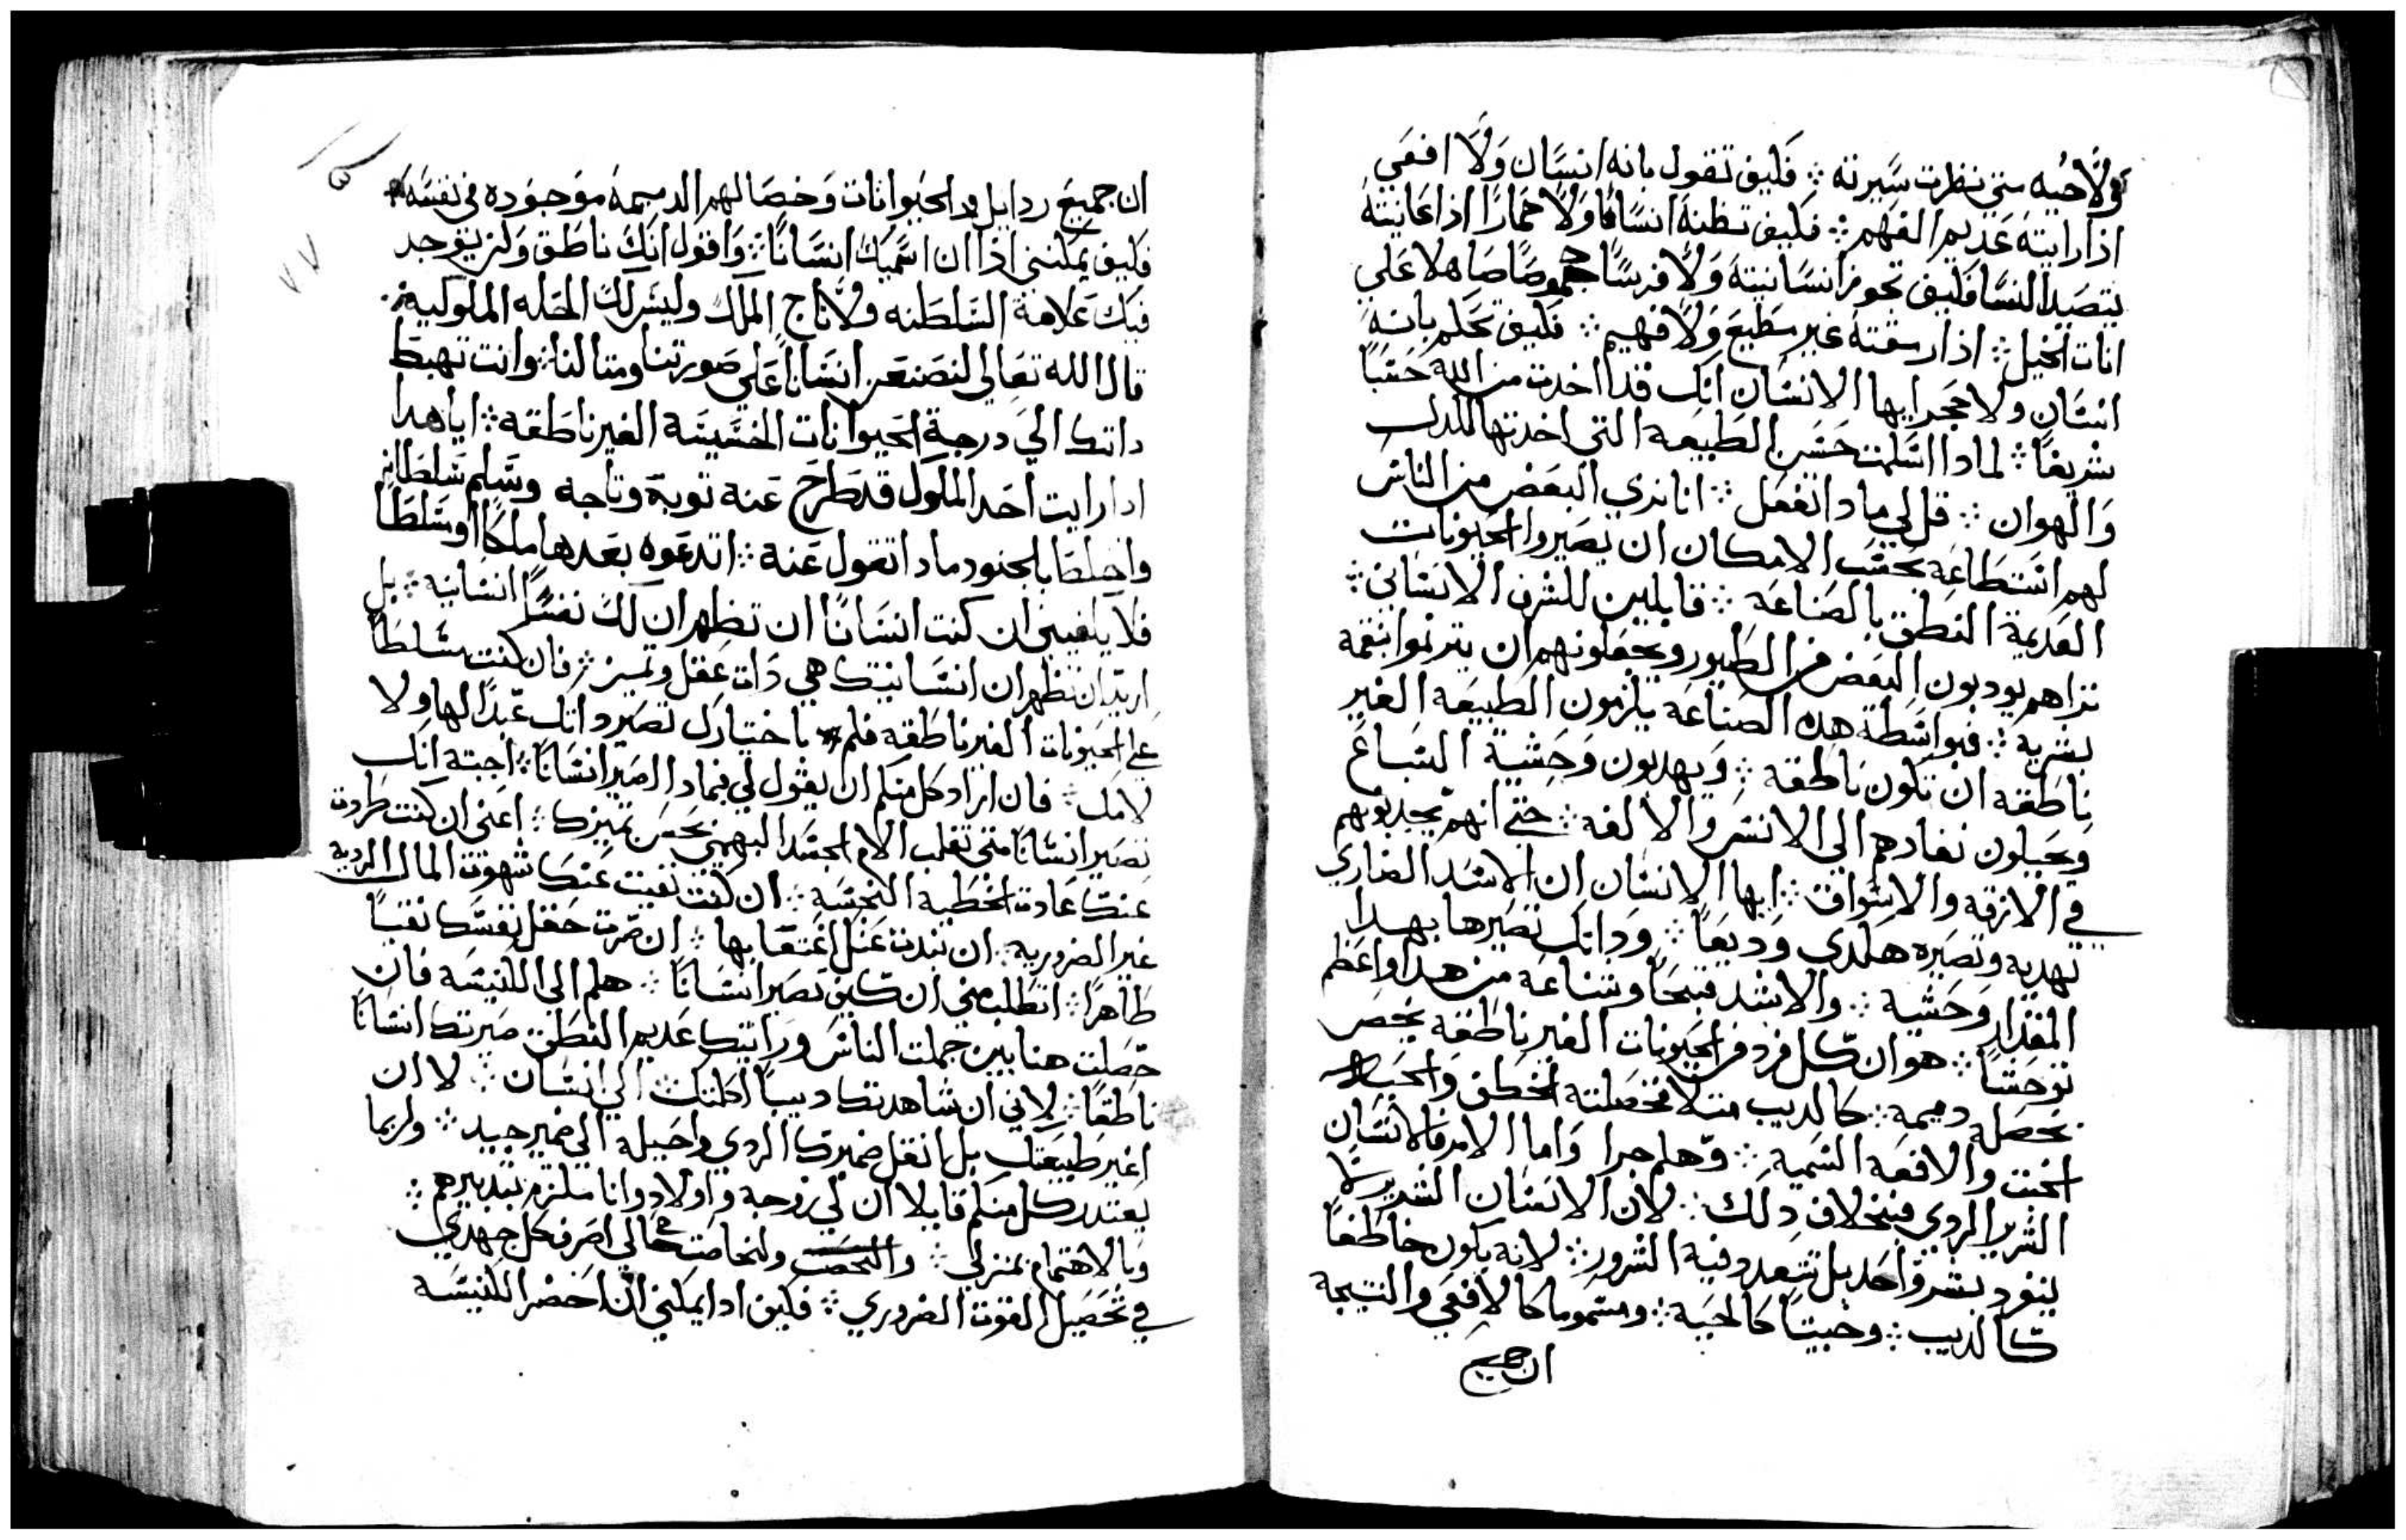 ولا حيه متي نظرت سيرته ؞ فكيف تقول بانه انسان ولا افعي
اذا رايته عديم الفهم ؞ فكيف تظنه انسانا ولا حمارا اذا عاينته
يتصيد النسا فكيف تحوز انسانيته ولا فرسا جموصا صاهلا علي
اناث الخيل ؞ اذا رمقته غير مطيع ولا فهيم ؞ فكيف تحلم بانه
انسان ولا حجر ايها الانسان انك قد اخدت من الله حسبا
شريفا ؞ لمادا اسلمت حسن الطبيعه التي اخدتها للدل
والهوان ؞ قل لي مادا تفعل ؞ انا ندي البعض من الناس
لهم استطاعة بحسب الامكان ان يصيروا الحيونات
العديمة النطق بالصناعه ؞ قابلين للشرف الانساني ؞
نراهم يودبون البعض من الطيور ويجعلونهم ان يترنموا بنغمه
بشريه ؞ فبواسطة هده الصناعه يلزمون الطبيعه الغير
ناطقه ان تكون ناطقة ؞ ويهدبون وحشية السباع
ويحيلون نفارهم الي الانس والالفه ؞ حتي انهم يجدبونهم
في الازقه والاسواق ؞ ايها الانسان ان الاسد الضاري
تهديه وتصيره هكدي وديعا ؞ وداتك تصيرها بهدا
المقدار وحشية ؞ والاشد قبحا وشناعه من هدا واعظم
توحشا ؞ هو ان كل فرد من الحيونات الغير ناطقه يخص
بخصله دميمه ؞ كالديب متلا فخصلته الخطف والحيه
الخبت والافعه السميه ؞ وهلم جرا واما الامر فالانسان
الشرير الردي فبخلاف دلك ؞ لان الانسان الشرير لا
ينفرد بشر واحد بل تتعدد فيه الشرور ؞ لانه يكون خاطفا
كالديب ؞ وخبيتا كالحيه ؞ ومسموما كالافعي والنتيجة
ان جميع
ان جميع ردايل الحيوانات وخصالهم الدميمه موجوده في نفسه
فكيف يمكنني اذا ان اسميك انسانا ؞ واقول انك ناطق ولم يوجد
فيك علامة السلطنه ولا تاج الملك وليس لك الحله الملوكيه
قال الله تعالي لنصنعن انسانا علي صورتنا ومتالنا ؞ وانت تهبط
داتك الي درجة الحيوانات الخسيسه الغير ناطقه ؞ ايا هدا
ادا رايت احد الملوك قد طرح عنه توبه وتاجه وسلم سلطانه
واختلط بالجنود مادا تقول عنه ؞ اتدعوه بعدها ملكا او سلطانا
فلا يكفيني ان كنت انسانا ان تظهر ان لك نفسا انسانيه ؞ بل
اريد ان تظهر ان انسانيتك هي دات عقل وتميز ؞ فان كنت مسلطا
علي الحيونات الغير ناطقه فلم باختيارك تصير داتك عبدا لها ولا
لامك ؞ فان اراد كل منكم ان يقول لي فبمادا اصير انسانا ؞ اجبته انك
تصير انسانا متي تغلب الام الجسد البهيمي بحسن تميزك ؞ اعني ان كنت طردت
عنك عادت الخطيه النجسه ؞ ان كنت نفيت عنك شهوة المال الرديه
غير الضروريه ؞ ان نبدت عنك اغتصابها ؞ ان صيرت حقل نفسك نقيا
طاهرا ؞ اتطلب مني ان كيف تصير انسانا ؞ هلم الي الكنيسه فان
حصلت هنا بين جملت الناس ورايتك عديم النطق صيرتك انسانا
ناطقا ؞ لاني ان شاهدتك ديبا احلتك الي انسان ؞ لا ان
اغير طبيعتك بل انقل ضميرك الردي واحيله الي ضمير جيد ؞ ولربما
يعتدر كل منكم قايلا ان لي زوجه واولاد وانا ملتزم بتدبيرهم ؞
وبالاهتمام بمنزلي ؞ ولخاصت حالي اصرف كل جهدي
في تحصيل القوت الضروري ؞ فكيف ادا يمكنني ان احضر الكنيسه